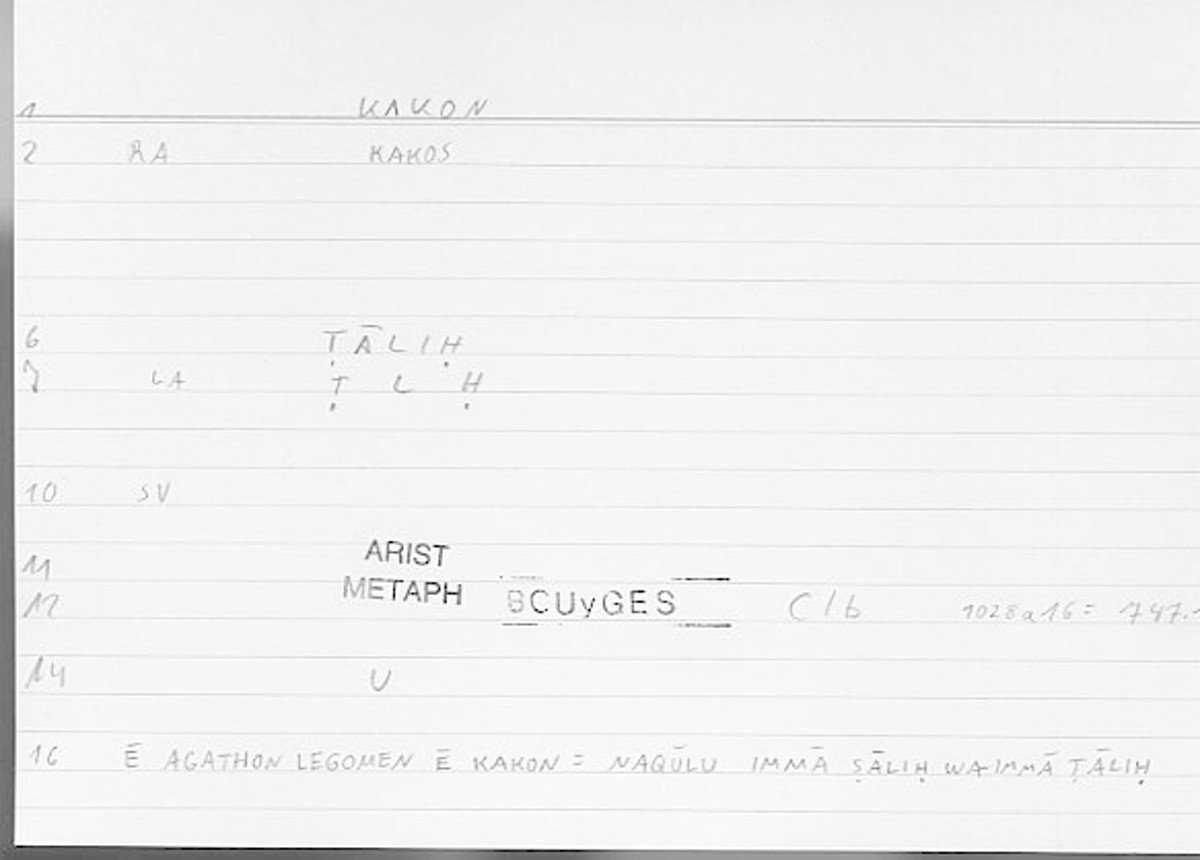 1 KAKON
2 RA KAKOS
6 ṬĀLIḤ
7 LA Ṭ L Ḥ
10 SV
11 ARIST
12 METAPH BOUyGES C/b 1028a16 = 747.
14 U
16 Ē AGATHON LEGOMEN Ē KAKON = NAQŪLU IMMĀ ṢĀLIḤ WA-IMMĀ ṬĀLIḤ